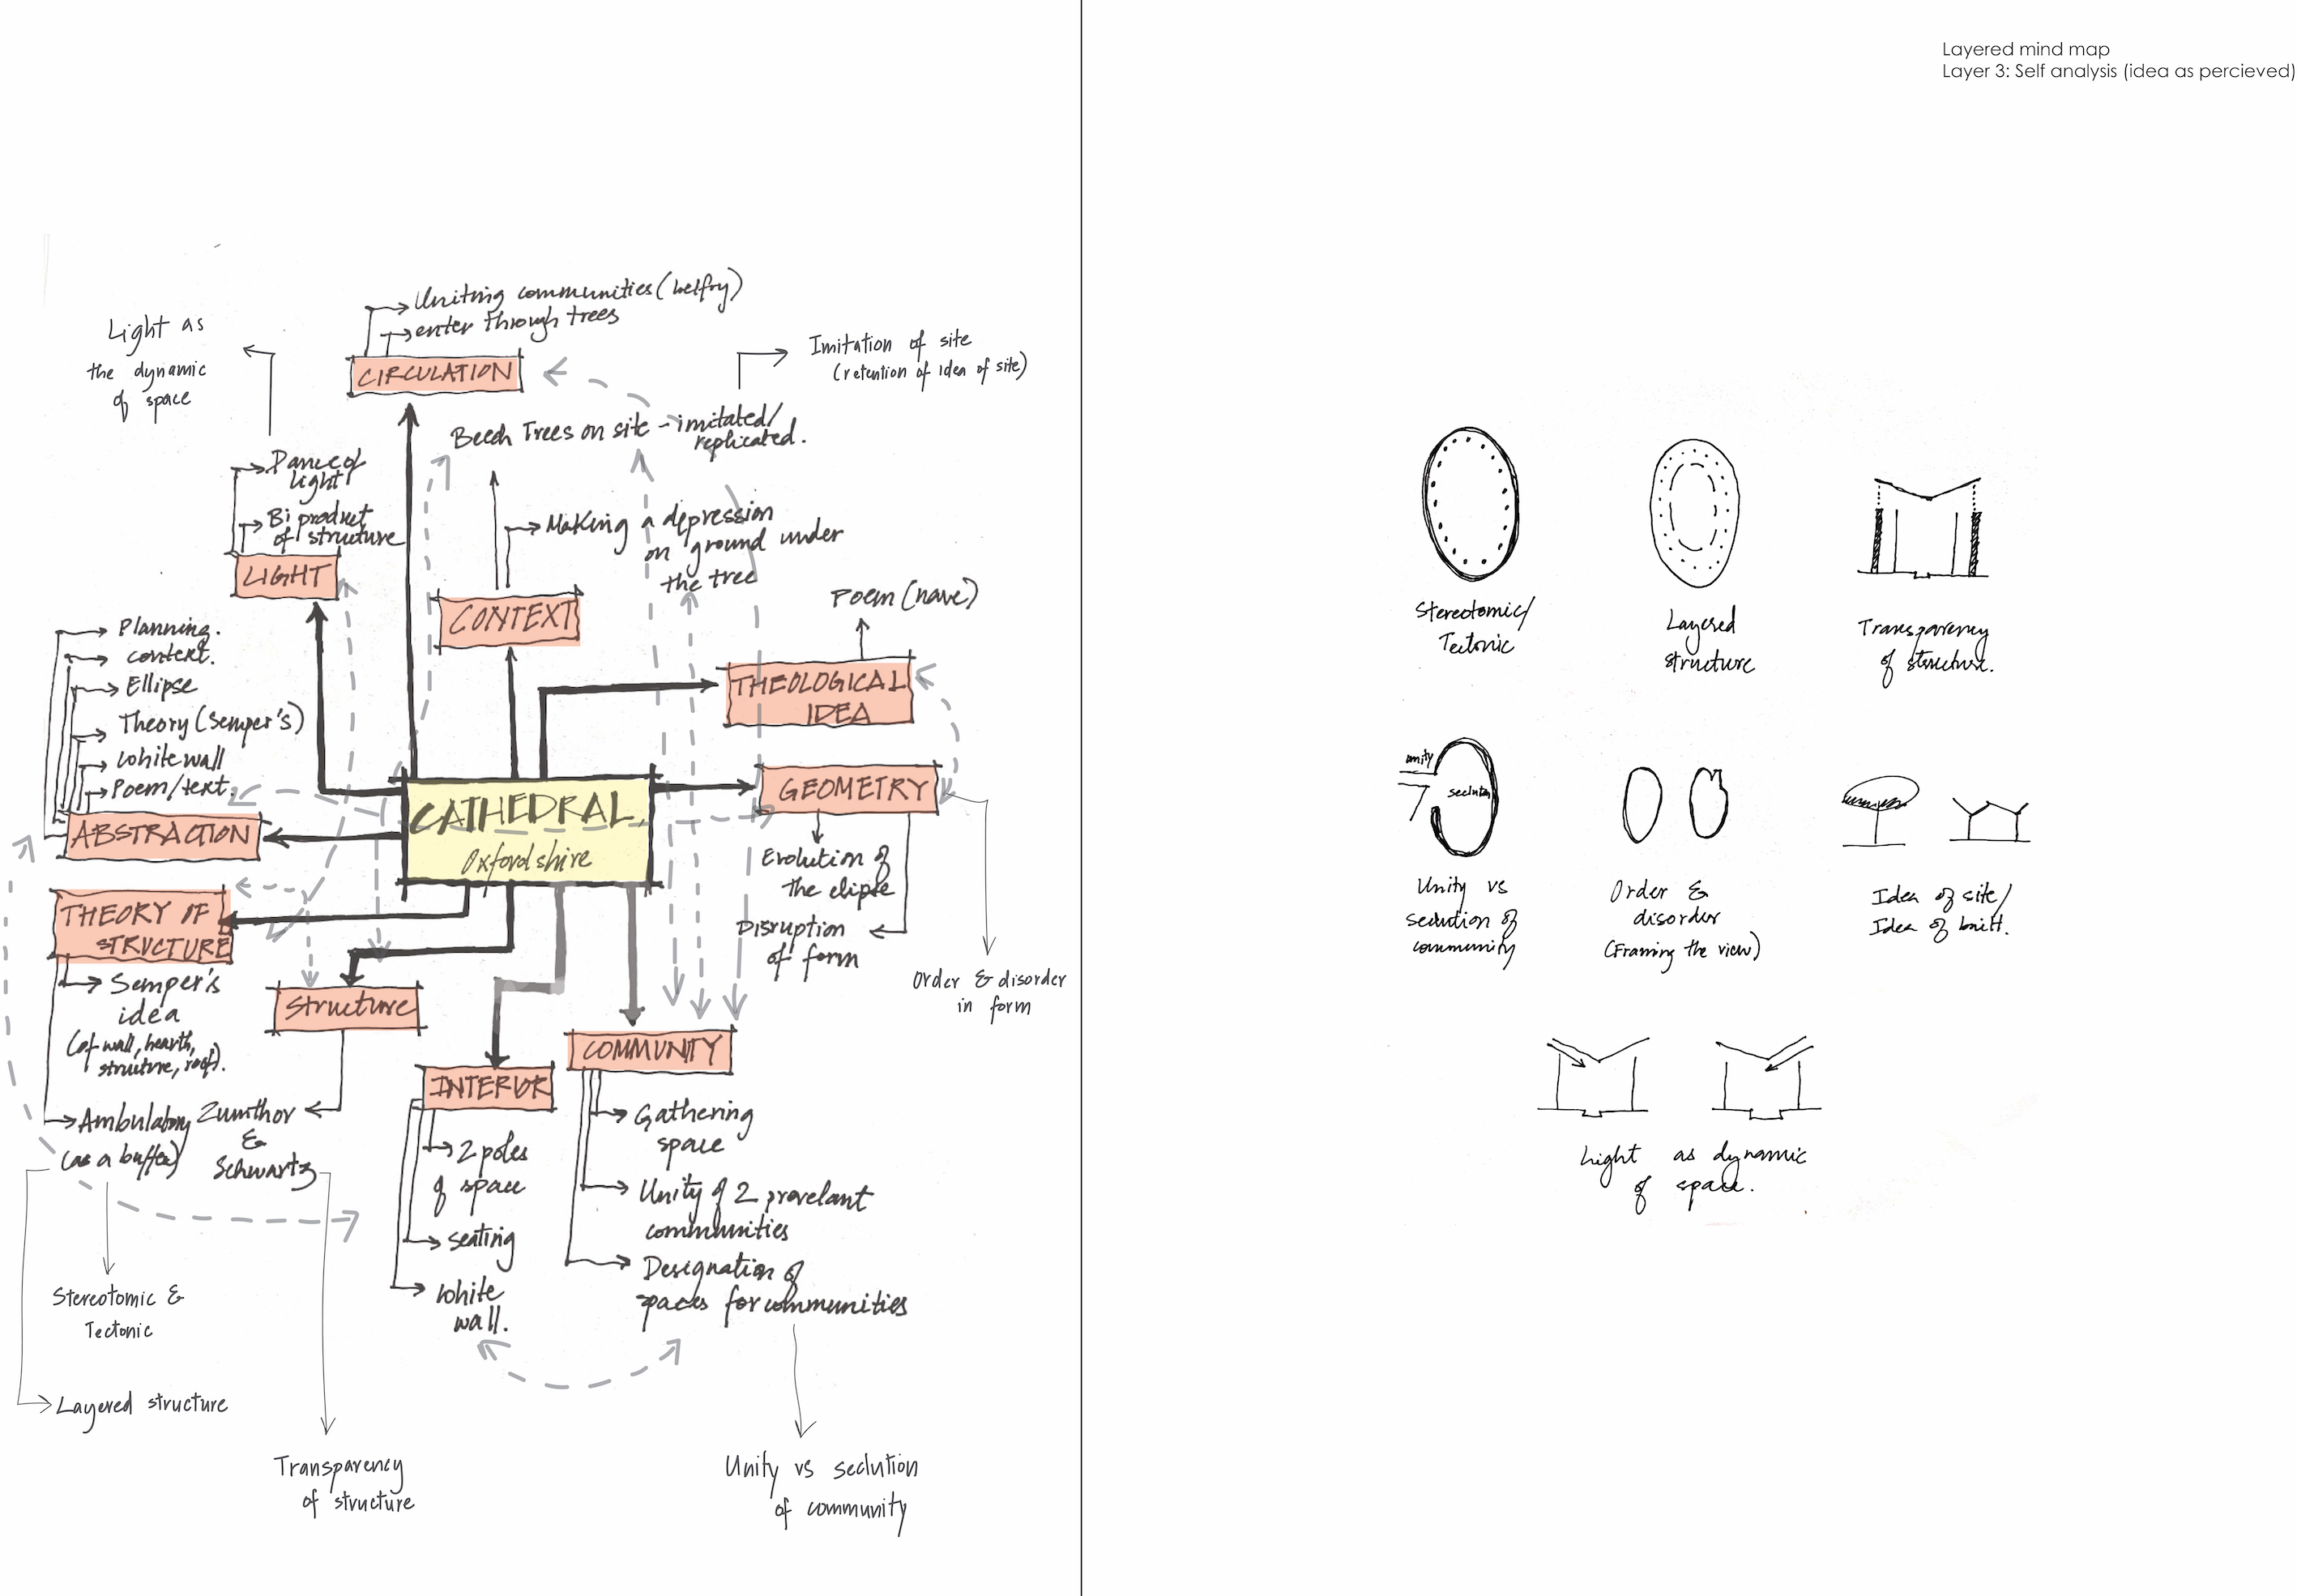 Layered mind map
Layer 3: Self analysis (idea as percieved)
Uniting communities (belfry)
enter through trees
CIRCULATION
Light as
the dynamic
of space
Imitation of site
(retention of idea of site)
Beech Trees on site - imitated/
replicated.
Dance of
light
Bi product
of structure
LIGHT
Making a depression
on ground under
the tree
CONTEXT
Poem (nave)
THEOLOGICAL
IDEA
Planning.
context.
Ellipse
Theory (Semper's)
White wall
Poem/text.
ABSTRACTION
CATHEDRAL,
Oxfordshire
GEOMETRY
Evolution of
the elipse
Disruption
of form
Order & disorder
in form
THEORY OF
STRUCTURE
Semper's
idea
(of wall, hearth,
structure, roof).
Ambulatory
(as a buffer)
Structure
Zumthor
&
Schwartz
INTERIOR
2 poles
of space
seating
White
wall.
COMMUNITY
Gathering
space
Unity of 2 prevelant
communities
Designation of
spaces for communities
Stereotomic &
Tectonic
Layered structure
Transparency
of structure
Unity vs seclution
of community
Stereotomic/
Tectonic
Layered
structure
Transparency
of structure.
unity
seclution
Unity vs
seclution of
community
Order &
disorder
(Framing the view)
Idea of site/
Idea of built.
Light as dynamic
of space.